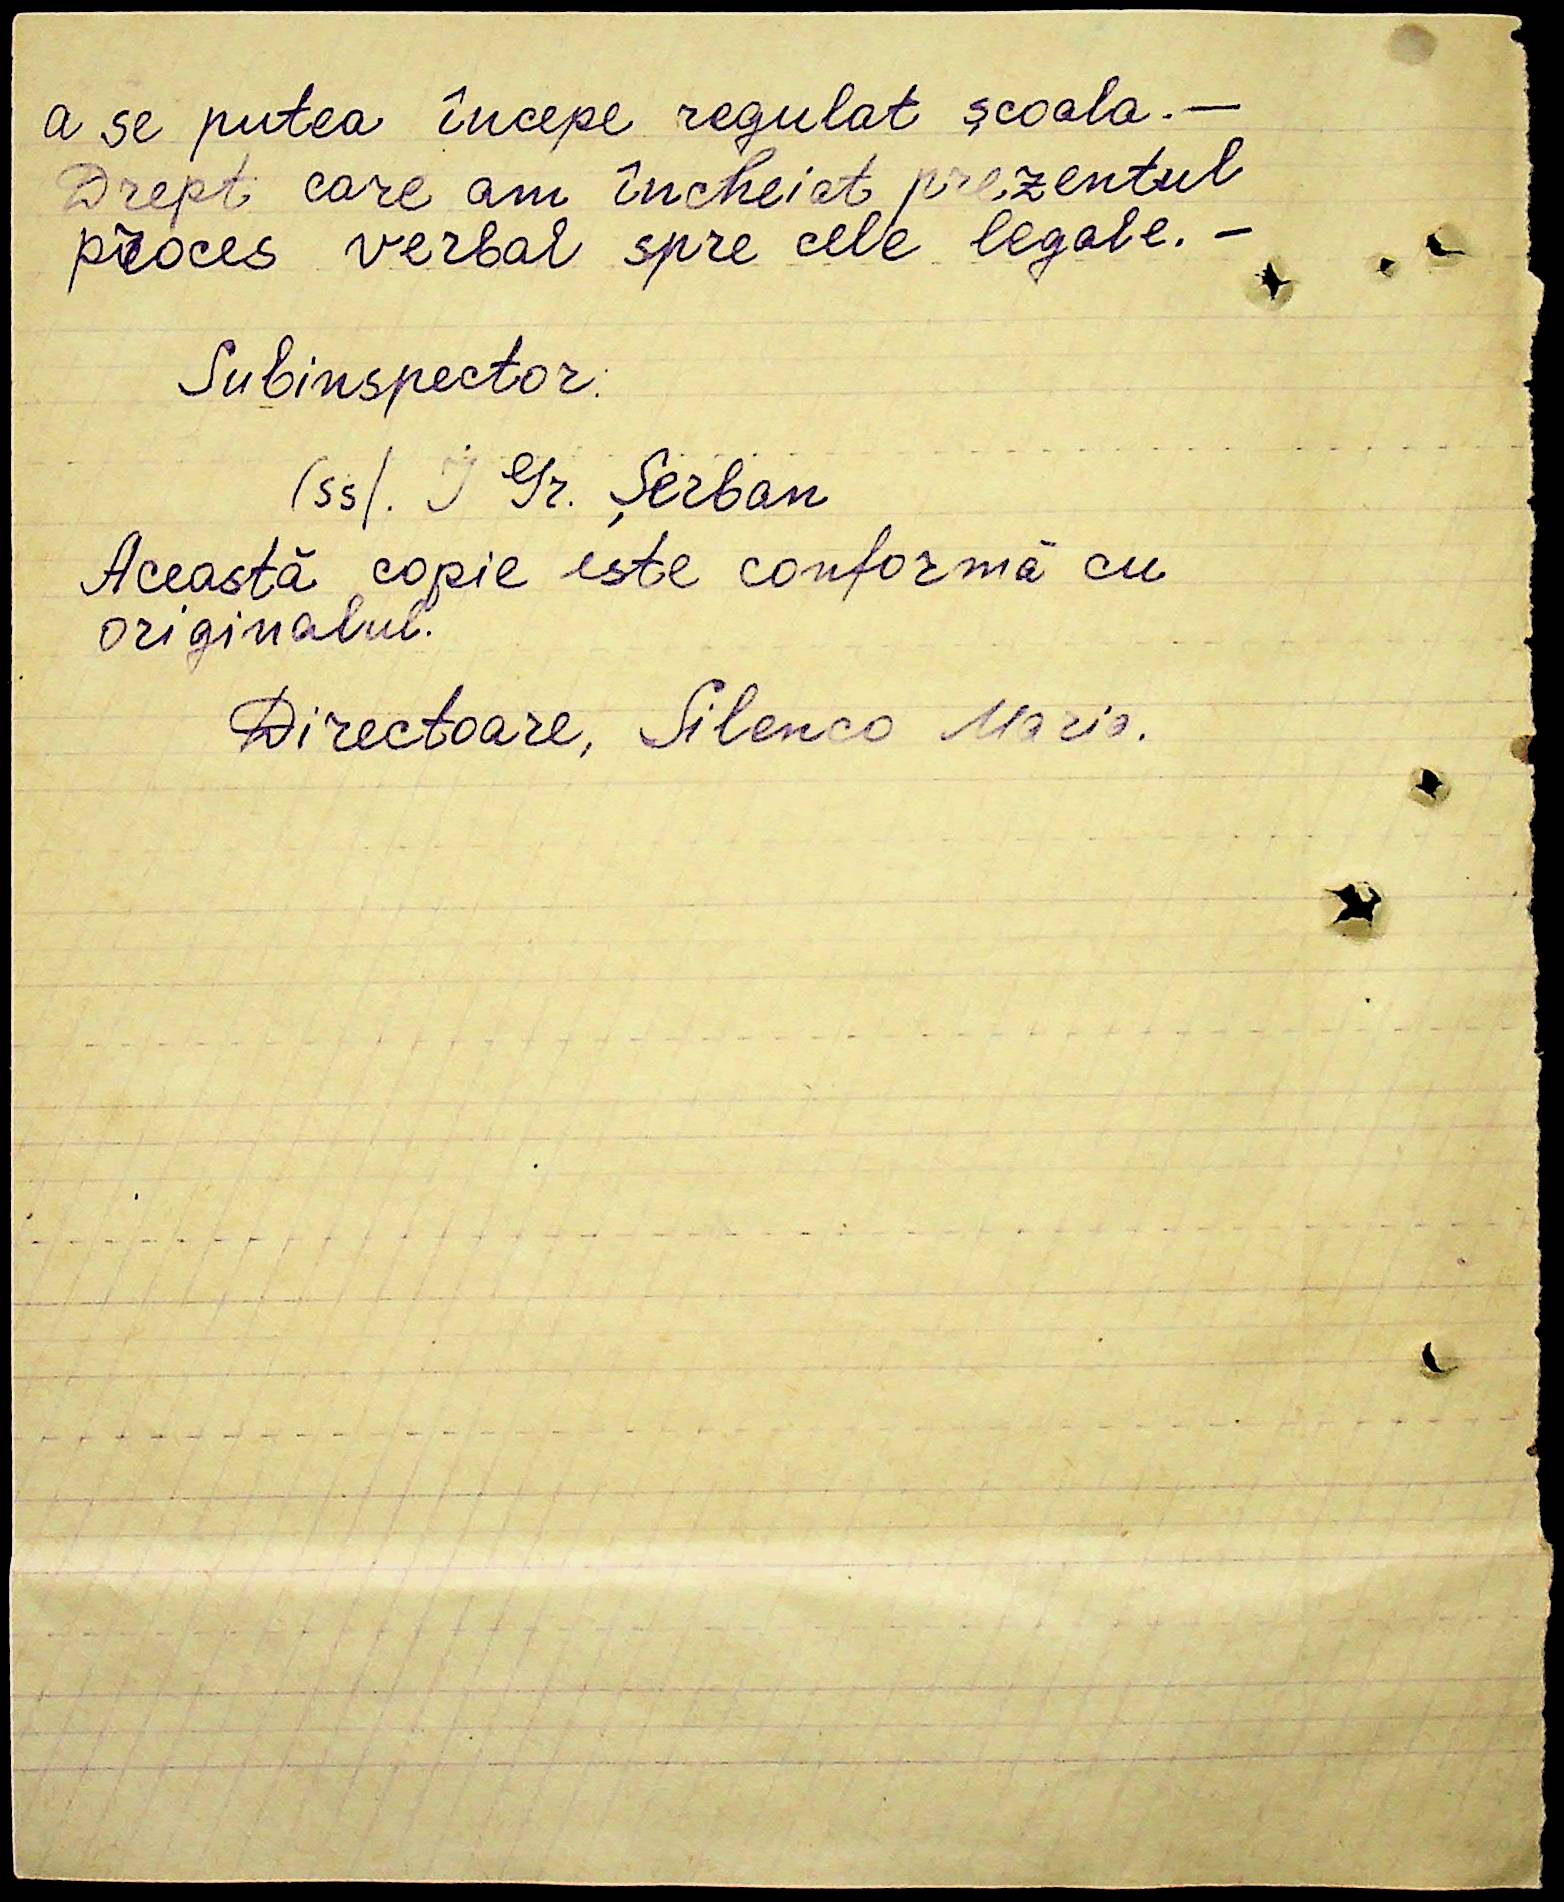 a se putea începe regulat școala. —
Drept care am încheiat prezentul
proces verbal spre cele legale. —
Subinspector:
(ss). I Gr. Șerban
Această copie este conformă cu
originalul.
Directoare, Silenco Maria.